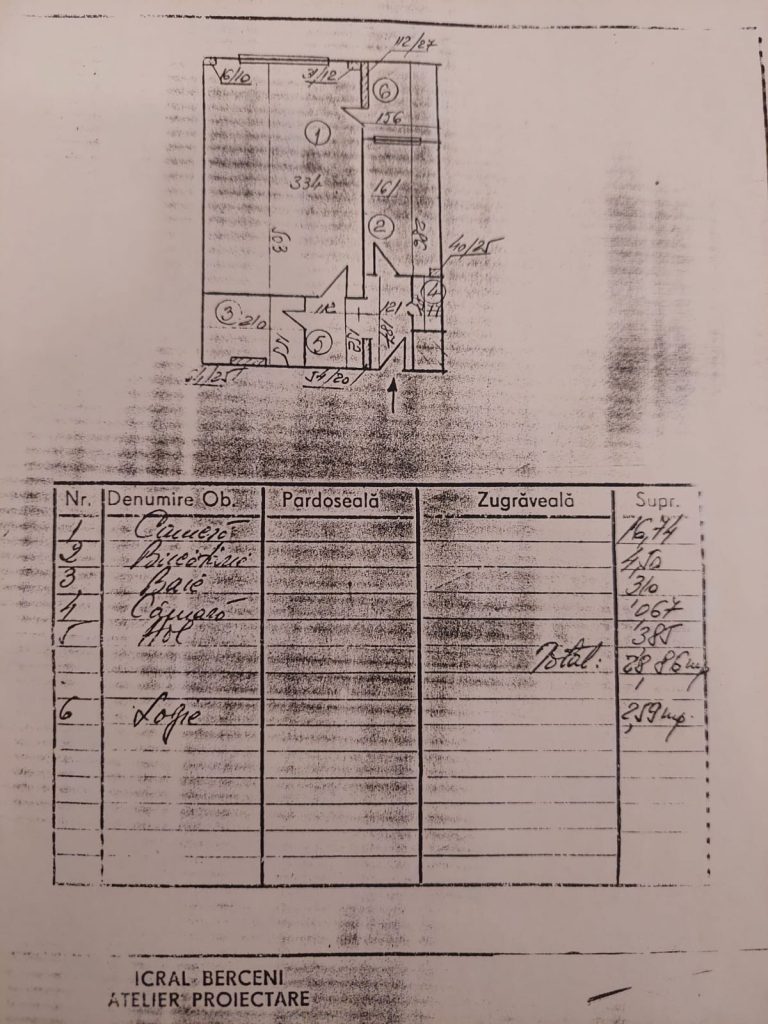 112/27
16/10
31/12
6
156
1
334
161
2
503
286
40/25
3
210
112
121
4
77
5
54/25
54/20
Nr. Denumire Ob. Pardoseală Zugrăveală Supr.
1 Cameră 16,74
2 Bucătărie 4,50
3 Baie 3,10
4 Cămară 0,67
5 Hol 3,85
Total: 28,86 mp
6 Logie 2,59 mp.
ICRAL BERCENI
ATELIER PROIECTARE